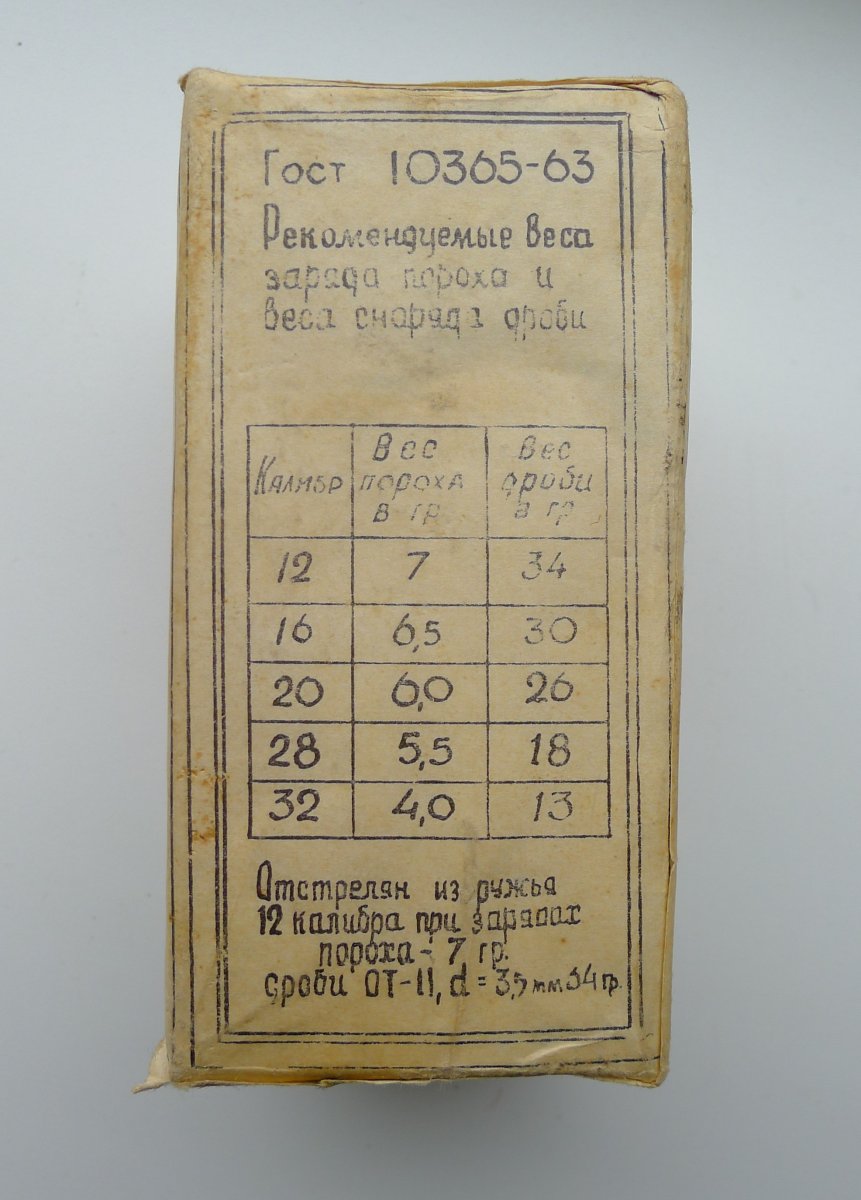 Гост 10365-63
Рекомендуемые веса
заряда пороха и
веса снаряда дроби
Калибр Вес пороха в гр Вес дроби в гр
12 7 34
16 6,5 30
20 6,0 26
28 5,5 18
32 4,0 13
Отстрелян из ружья
12 калибра при зарядах
пороха - 7 гр.
дроби ОТ-II, d = 3,5 мм 34 гр.